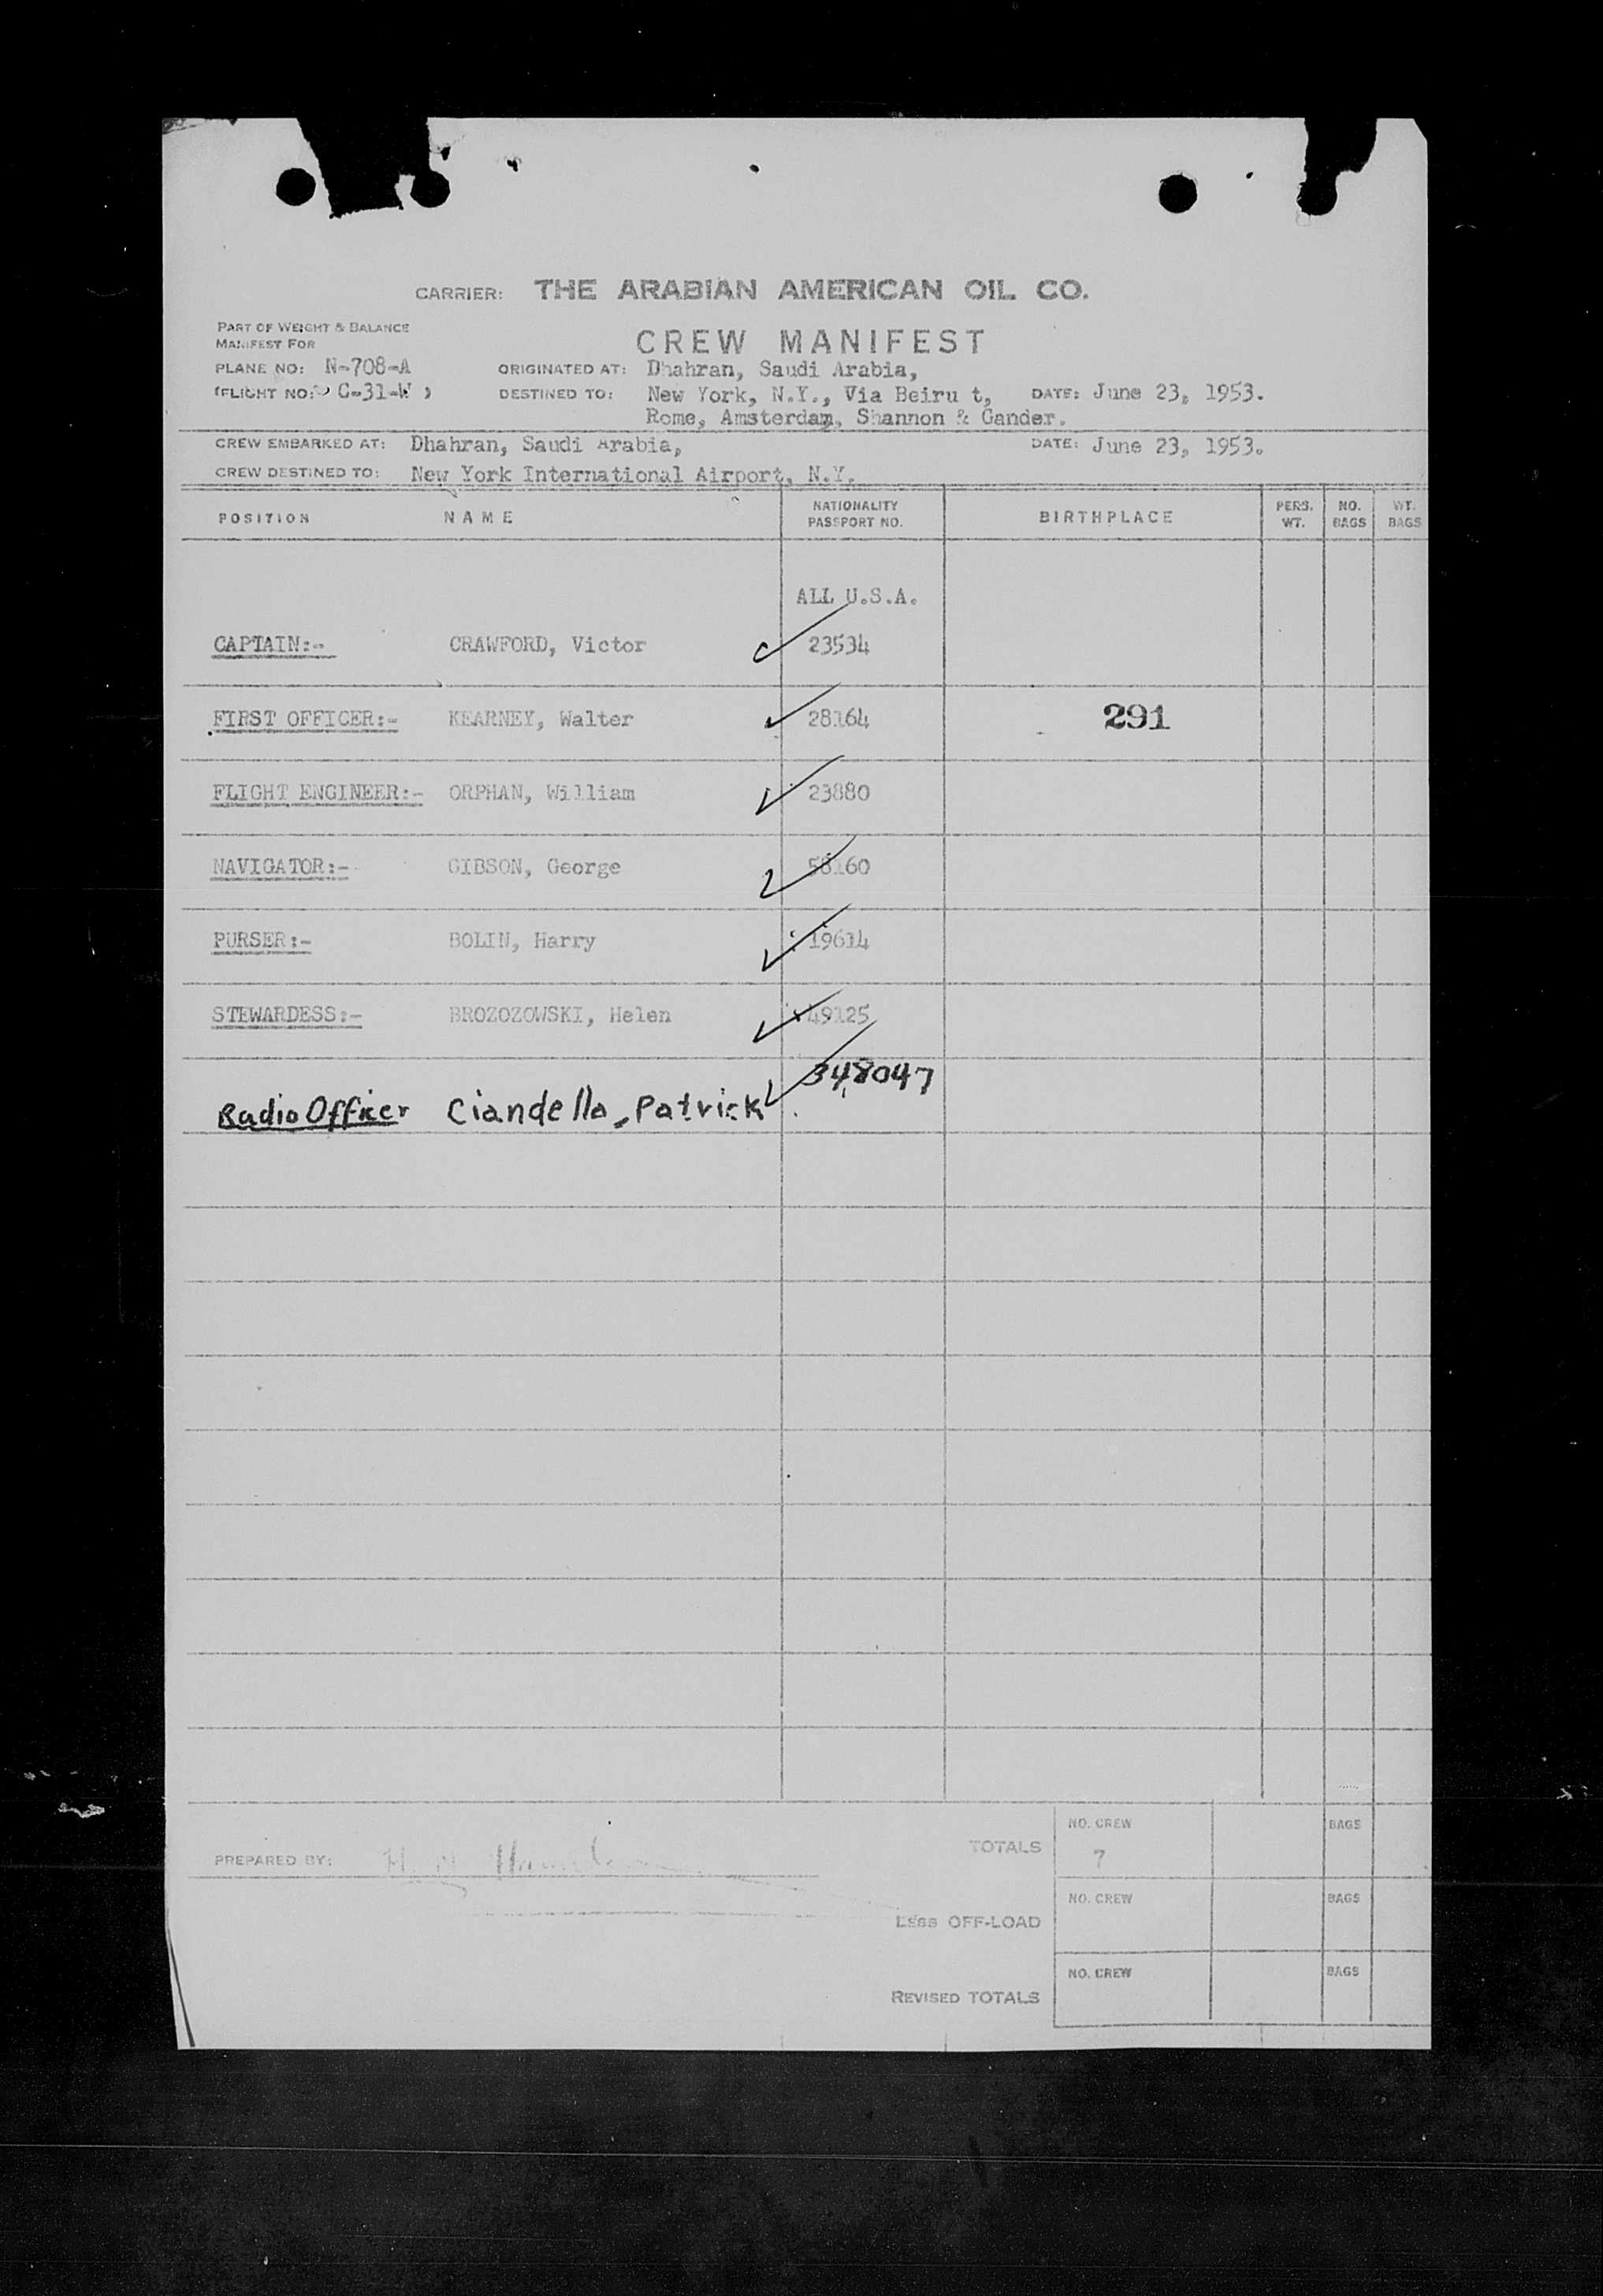 CARRIER: THE ARABIAN AMERICAN OIL CO.
PART OF WEIGHT & BALANCE
MANIFEST FOR
CREW MANIFEST
PLANE NO: N-708-A ORIGINATED AT: Dhahran, Saudi Arabia,
(FLIGHT NO: G-31-W ) DESTINED TO: New York, N.Y., Via Beiru t, DATE: June 23, 1953.
Rome, Amsterdam, Shannon & Gander.
CREW EMBARKED AT: Dhahran, Saudi Arabia, DATE: June 23, 1953.
CREW DESTINED TO: New York International Airport, N.Y.
POSITION NAME NATIONALITY PASSPORT NO. BIRTHPLACE PERS. WT. NO. BAGS WT. BAGS
ALL U.S.A.
CAPTAIN:- CRAWFORD, Victor 23534
FIRST OFFICER:- KEARNEY, Walter 28164 291
FLIGHT ENGINEER:- ORPHAN, William 23880
NAVIGATOR:- GIBSON, George 58160
PURSER:- BOLIN, Harry 19614
STEWARDESS:- BROZOZOWSKI, Helen 49125
Radio Officer Ciandella, Patrick 348047
NO. CREW BAGS
PREPARED BY: TOTALS 7
NO. CREW BAGS
LESS OFF-LOAD
NO. CREW BAGS
REVISED TOTALS